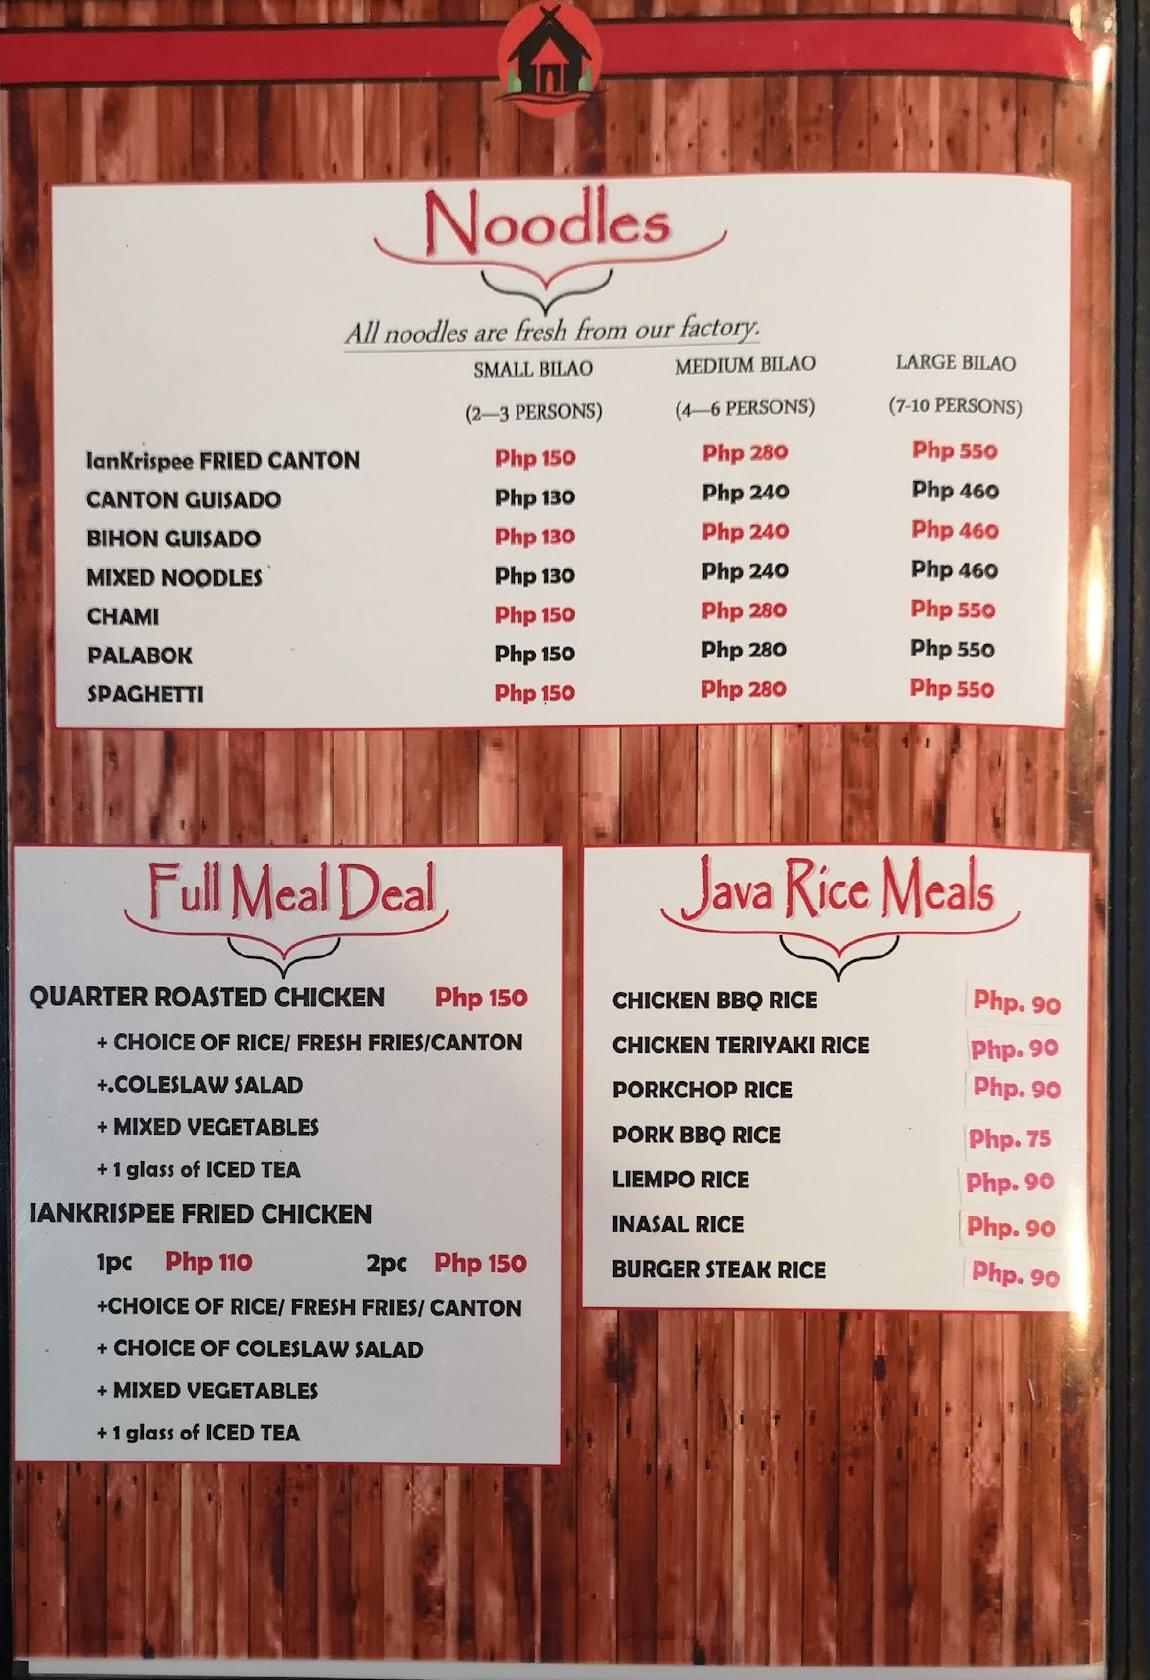 Noodles
All noodles are fresh from our factory.
SMALL BILAO MEDIUM BILAO LARGE BILAO
(2—3 PERSONS) (4—6 PERSONS) (7-10 PERSONS)
IanKrispee FRIED CANTON Php 150 Php 280 Php 550
CANTON GUISADO Php 130 Php 240 Php 460
BIHON GUISADO Php 130 Php 240 Php 460
MIXED NOODLES Php 130 Php 240 Php 460
CHAMI Php 150 Php 280 Php 550
PALABOK Php 150 Php 280 Php 550
SPAGHETTI Php 150 Php 280 Php 550
Full Meal Deal
QUARTER ROASTED CHICKEN Php 150
+ CHOICE OF RICE/ FRESH FRIES/CANTON
+.COLESLAW SALAD
+ MIXED VEGETABLES
+ 1 glass of ICED TEA
IANKRISPEE FRIED CHICKEN
1pc Php 110 2pc Php 150
+CHOICE OF RICE/ FRESH FRIES/ CANTON
+ CHOICE OF COLESLAW SALAD
+ MIXED VEGETABLES
+ 1 glass of ICED TEA
Java Rice Meals
CHICKEN BBQ RICE Php. 90
CHICKEN TERIYAKI RICE Php. 90
PORKCHOP RICE Php. 90
PORK BBQ RICE Php. 75
LIEMPO RICE Php. 90
INASAL RICE Php. 90
BURGER STEAK RICE Php. 90